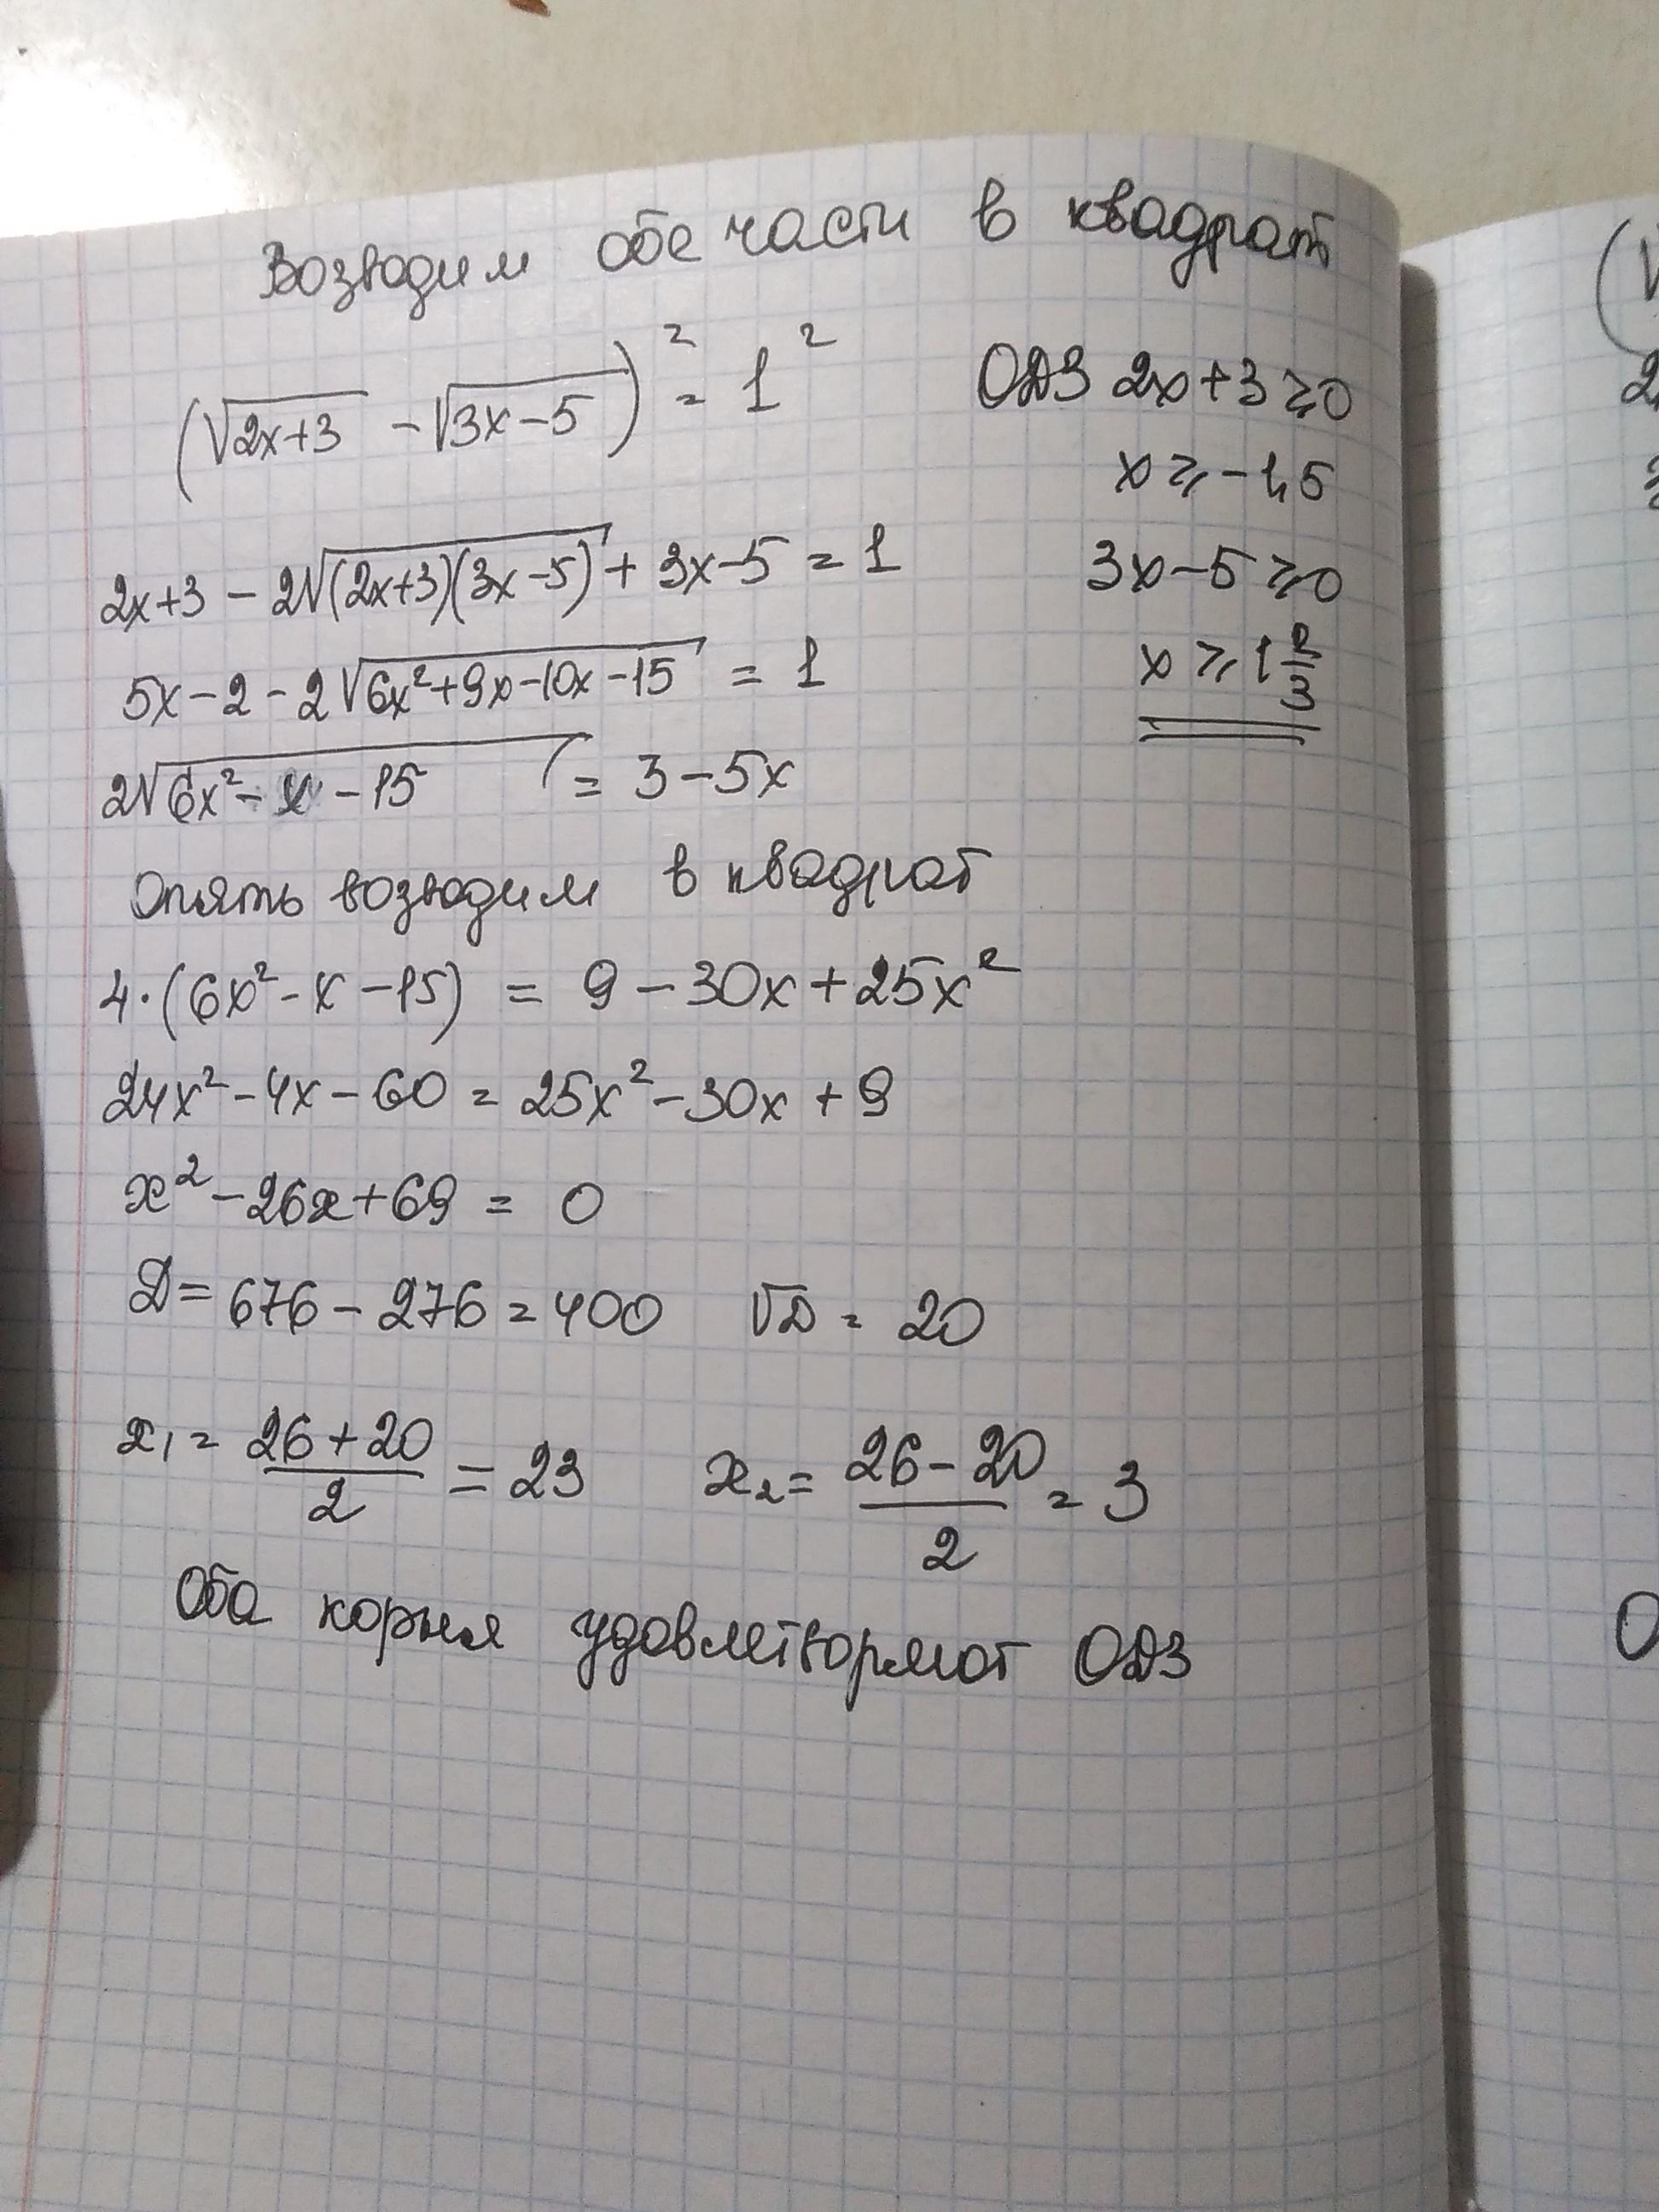 Возводим обе части в квадрат
(√(2x+3) - √(3x-5))² = 1²
ОДЗ 2x+3⩾0
x⩾-1,5
2x+3 - 2√((2x+3)(3x-5)) + 3x-5 = 1
3x-5⩾0
5x-2-2√(6x²+9x-10x-15) = 1
x⩾1 2/3
2√(6x²-x-15) = 3-5x
Опять возводим в квадрат
4·(6x²-x-15) = 9-30x+25x²
24x²-4x-60 = 25x²-30x+9
x²-26x+69 = 0
D = 676-276 = 400 √D = 20
x₁ = (26+20)/2 = 23 x₂ = (26-20)/2 = 3
Оба корня удовлетворяют ОДЗ